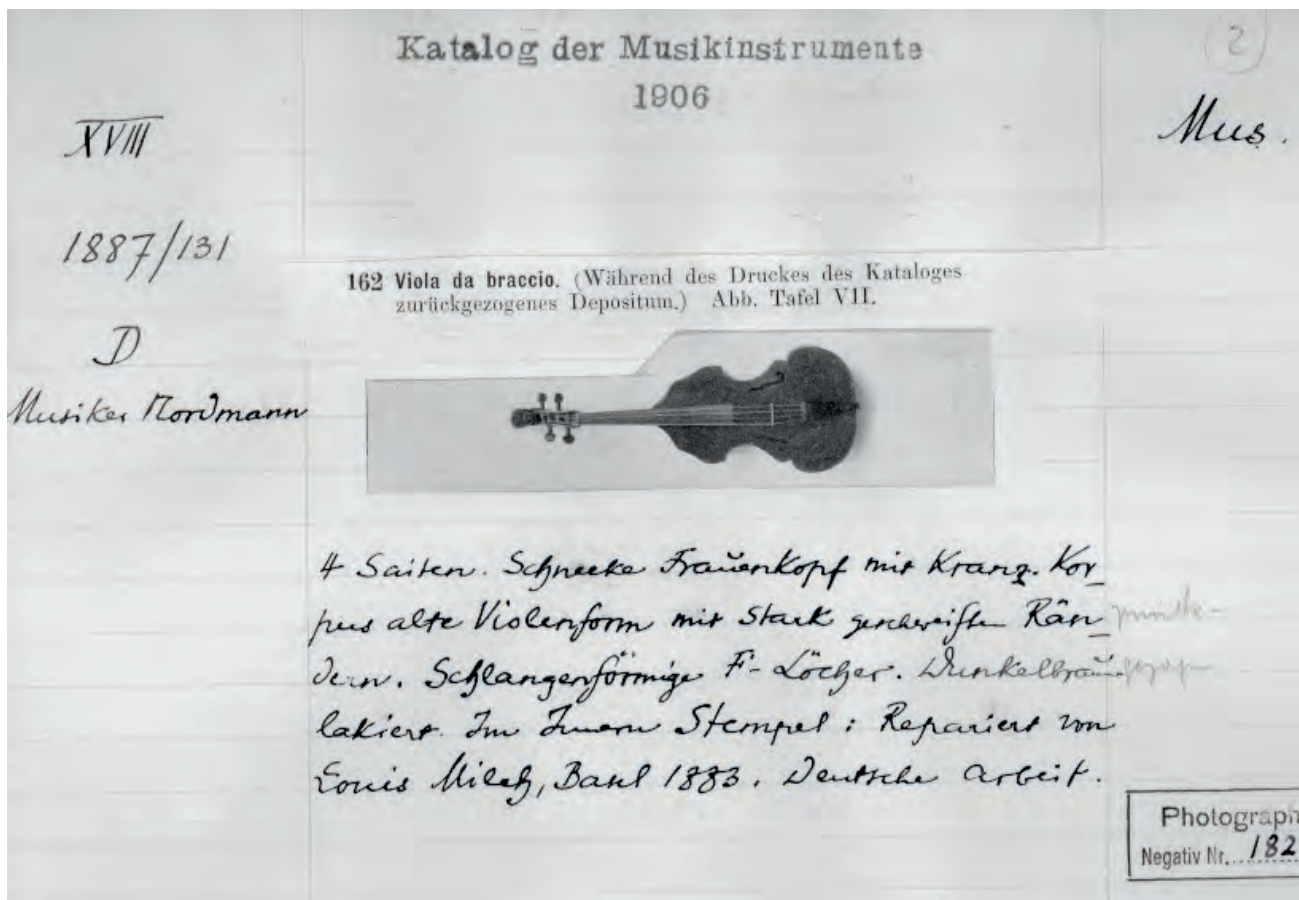 Katalog der Musikinstrumente
1906
(2)
XVIII
Mus.
1887/131
D
Musiker Nordmann
162 Viola da braccio. (Während des Druckes des Kataloges
zurückgezogenes Depositum.) Abb. Tafel VII.
4 Saiten. Schnecke Frauenkopf mit Kranz. Kor-
pus alte Violenform mit stark geschweiften Rän-
dern. Schlangenförmige F-Löcher. Dunkelbraun
lakiert. Im Innern Stempel: Repariert von
Louis Milch, Basel 1883. Deutsche Arbeit.
Photograph
Negativ Nr. 182